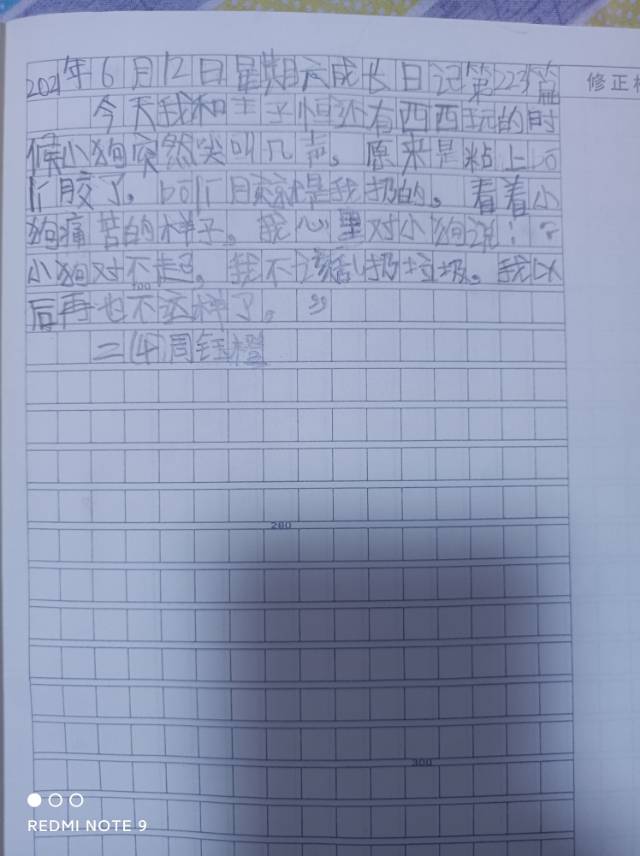 2021年6月12日星期六成长日记第223篇
修正栏
今天我和王子恒还有西西玩的时
候小狗突然尖叫几声。原来是粘上口
胶了。口月就是我扔的。看着小
狗痛苦的样子。我心里对小狗说:“
小狗对不起。我不该乱扔垃圾。我以
后再也不这样了。”
二(4)周钰橙
200
280
300
REDMI NOTE 9